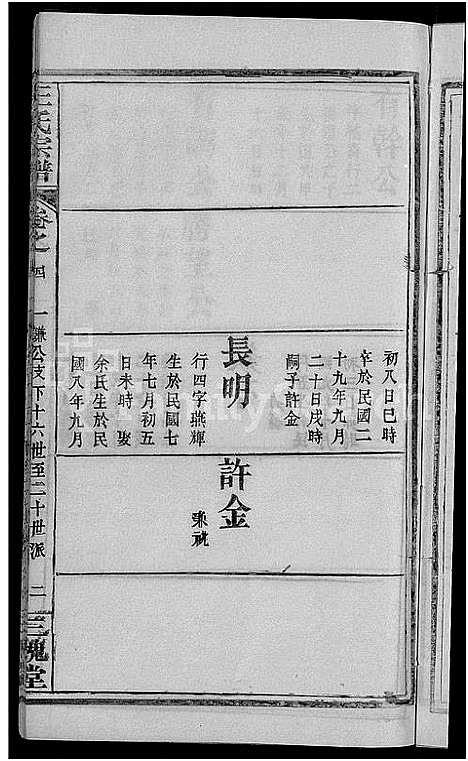 初八日巳時
卒於民國二
十九年九月
二十日戌時
嗣子許金
長明
行四字燕輝
生於民國七
年七月初五
日未時 娶
余氏生於民
國八年九月
許金
兼祧
王氏宗譜
卷之四
一謙公支下十六世至二十世派
二
三槐堂